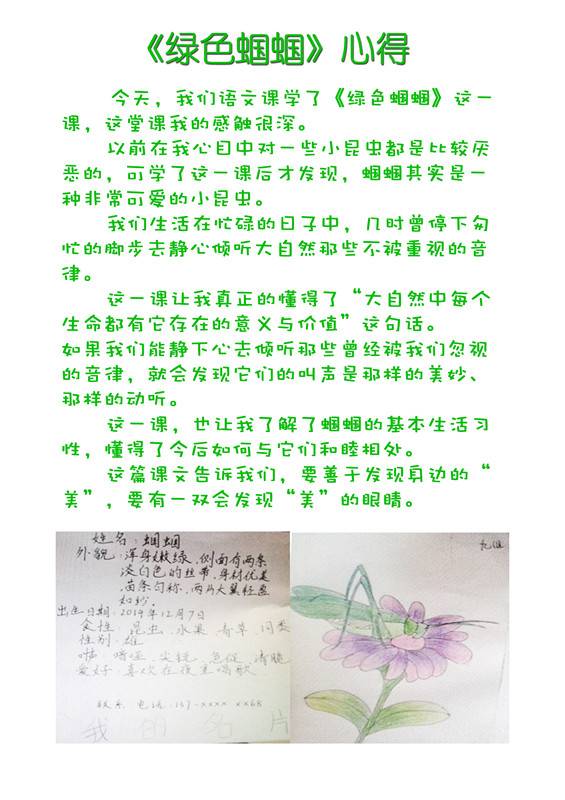 《绿色蝈蝈》心得
今天，我们语文课学了《绿色蝈蝈》这一
课，这堂课我的感触很深。
以前在我心目中对一些小昆虫都是比较厌
恶的，可学了这一课后才发现，蝈蝈其实是一
种非常可爱的小昆虫。
我们生活在忙碌的日子中，几时曾停下匆
忙的脚步去静心倾听大自然那些不被重视的音
律。
这一课让我真正的懂得了“大自然中每个
生命都有它存在的意义与价值”这句话。
如果我们能静下心去倾听那些曾经被我们忽视
的音律，就会发现它们的叫声是那样的美妙、
那样的动听。
这一课，也让我了解了蝈蝈的基本生活习
性，懂得了今后如何与它们和睦相处。
这篇课文告诉我们，要善于发现身边的“
美”，要有一双会发现“美”的眼睛。
姓名：蝈蝈
外貌：浑身嫩绿，侧面有两条
淡白色的丝带，身材优美
苗条匀称，两片大翼轻盈
如纱。
出生日期：2014年12月7日
食性：昆虫 水果 青草 同类
性别：雄
喑哑 尖锐 急促 清脆
爱好：喜欢在夜里唱歌
联系 电话：137-xxxx xx68
我的名片